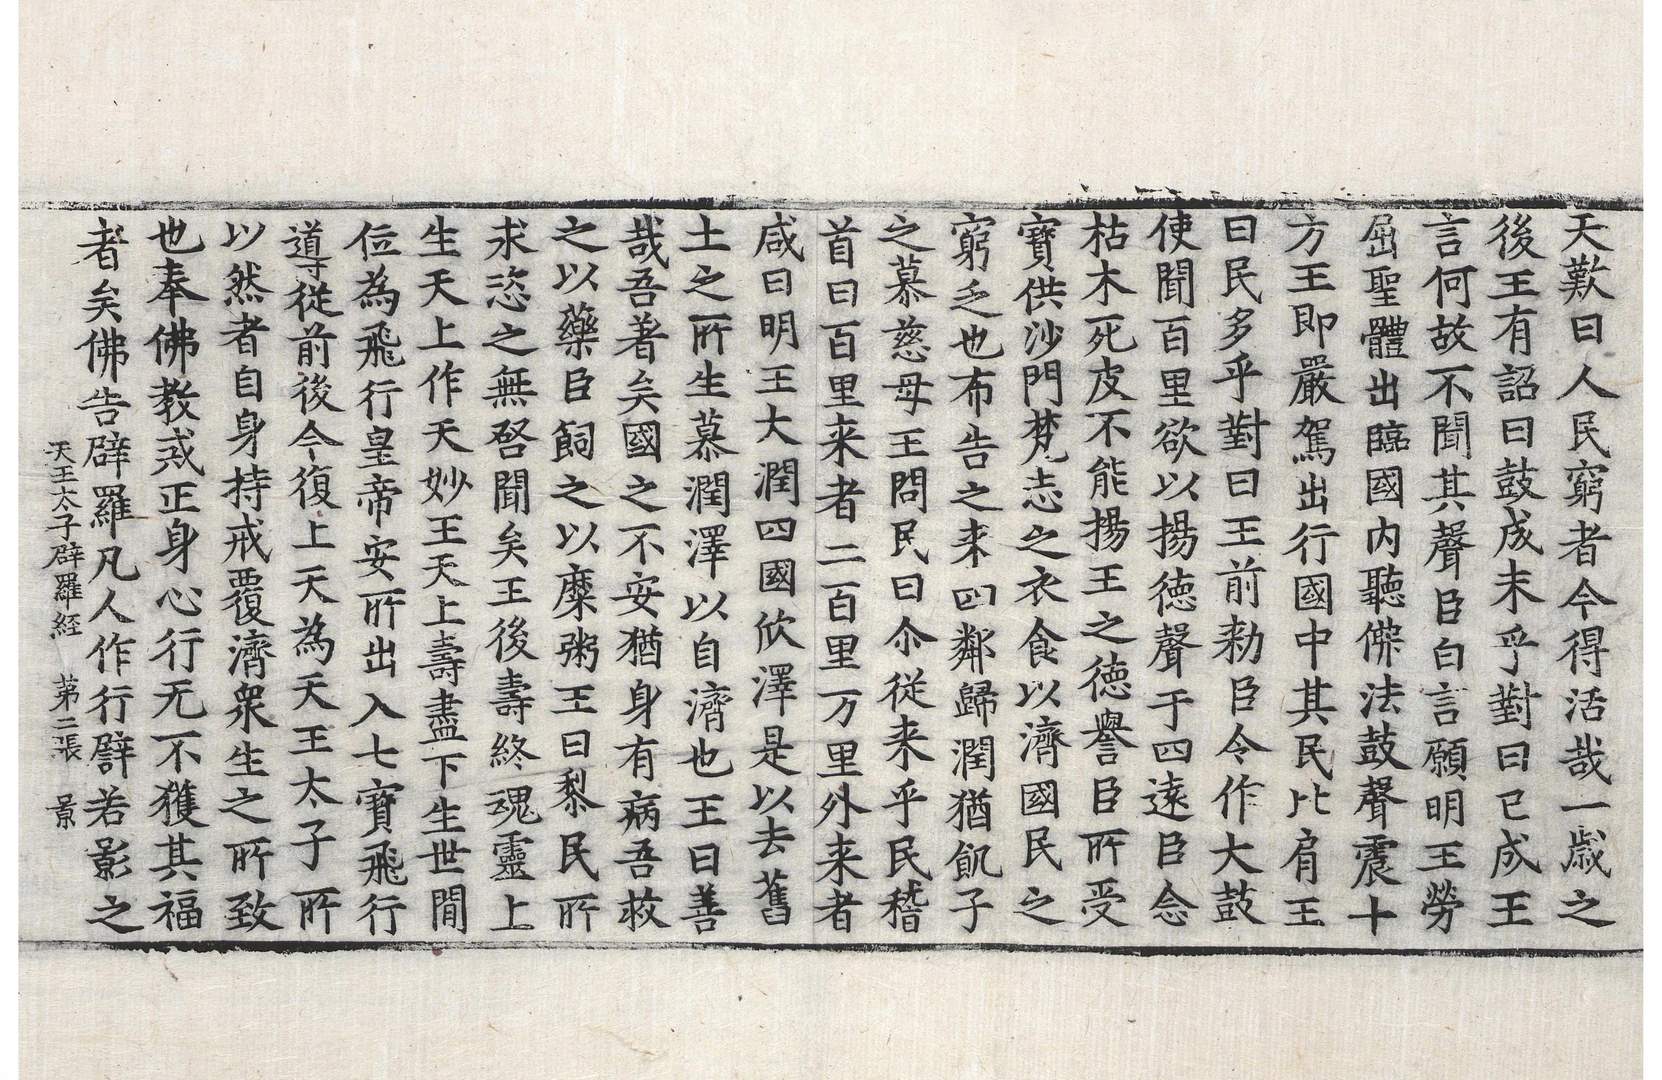 天歎曰人民窮者今得活哉一歲之
後王有詔曰鼓成未乎對曰已成王
言何故不聞其聲臣白言願明王勞
屈聖體出臨國內聽佛法鼓聲震十
方王即嚴駕出行國中其民比肩王
曰民多乎對曰王前勑臣令作大鼓
使聞百里欲以揚德聲于四遠臣念
枯木死皮不能揚王之德譽臣所受
寶供沙門梵志之衣食以濟國民之
窮乏也布告之来四鄰歸潤猶飢子
之慕慈母王問民曰尒從来乎民稽
首曰百里来者二百里万里外来者
咸曰明王大潤四國欣澤是以去舊
土之所生慕潤澤以自濟也王曰善
哉吾著矣國之不安猶身有病吾救
之以藥臣飼之以糜粥王曰黎民所
求恣之無啓聞矣王後壽終魂靈上
生天上作天妙王天上壽盡下生世間
位為飛行皇帝安所出入七寶飛行
導從前後今復上天為天王太子所
以然者自身持戒覆濟衆生之所致
也奉佛教戒正身心行无不獲其福
者矣佛告辟羅凡人作行譬若影之
天王太子辟羅経　第二張　景